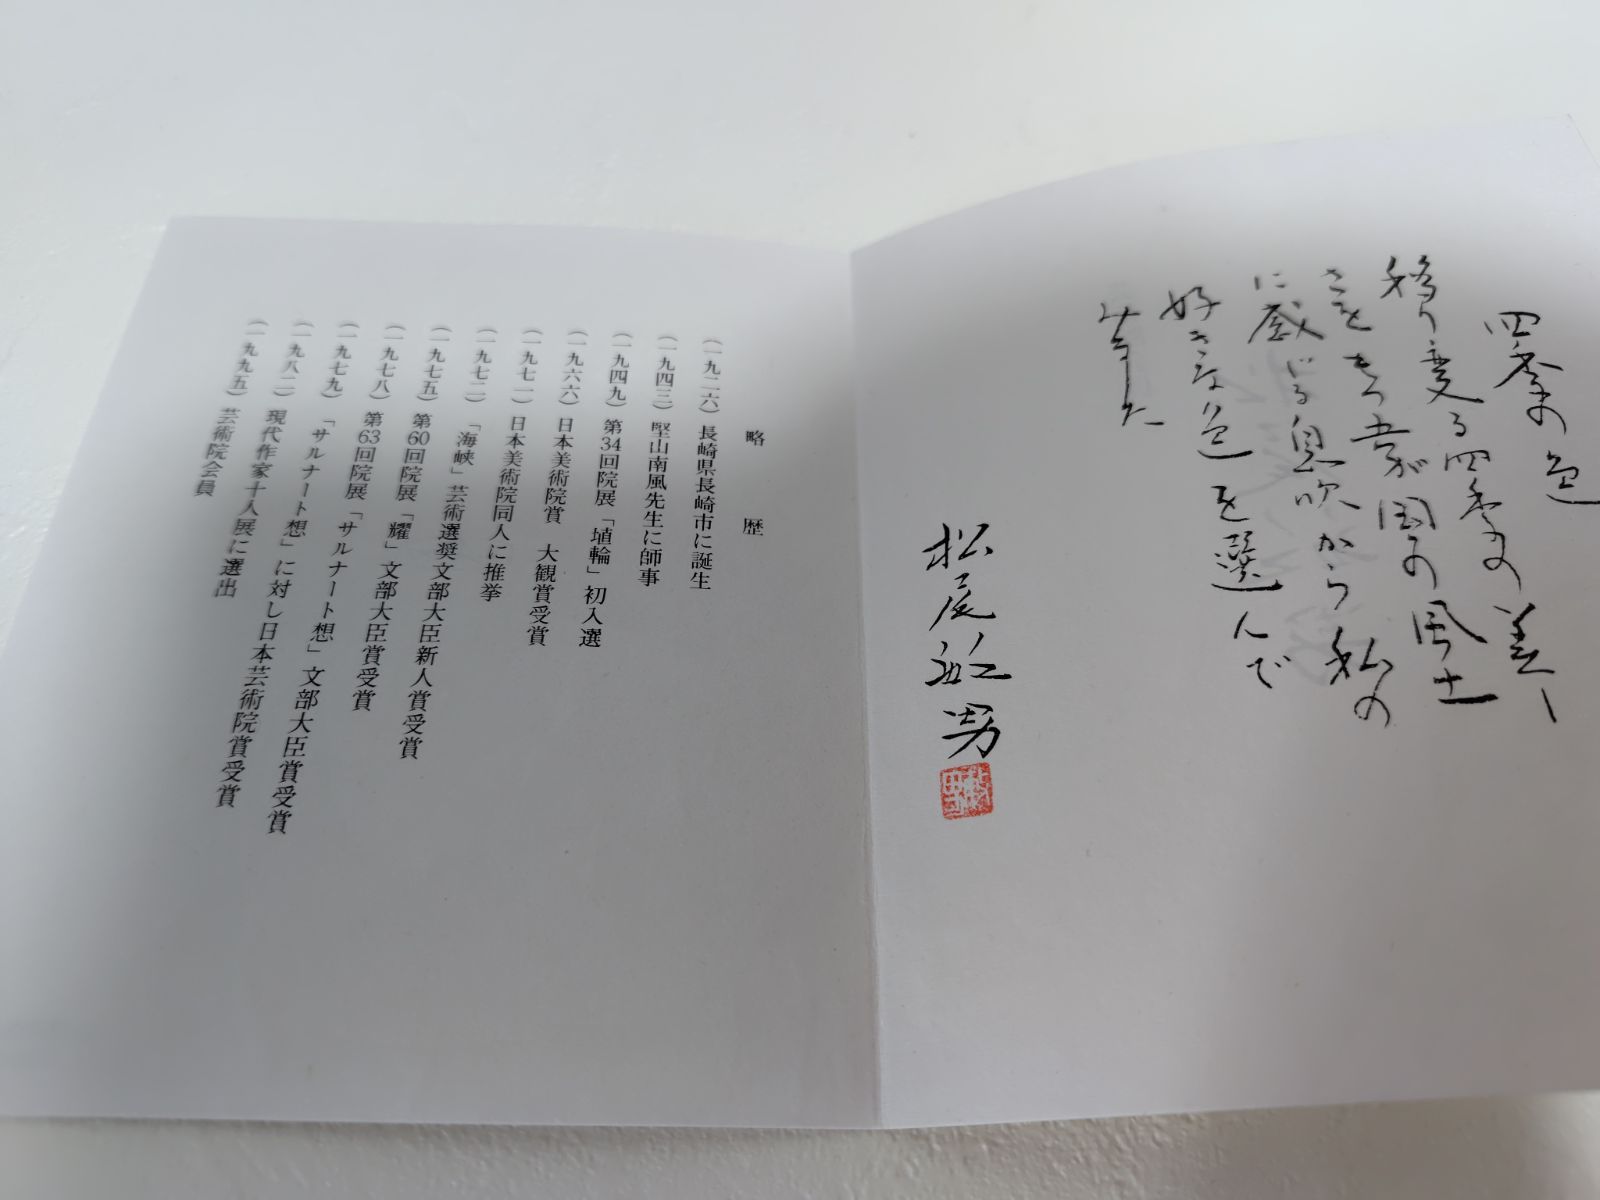 四季の色
移り変る四季の美し
さをもつ吾が国の風土
に感じる息吹から私の
好きな色を選んで
みました
松尾敏男
略歴
(一九二六) 長崎県長崎市に誕生
(一九四三) 堅山南風先生に師事
(一九四九) 第34回院展「埴輪」初入選
(一九六六) 日本美術院賞 大観賞受賞
(一九七一) 日本美術院同人に推挙
(一九七二) 「海峡」芸術選奨文部大臣新人賞受賞
(一九七五) 第60回院展「耀」文部大臣賞受賞
(一九七八) 第63回院展「サルナート想」文部大臣賞受賞
(一九七九) 「サルナート想」に対し日本芸術院賞受賞
(一九八二) 現代作家十人展に選出
(一九九五) 芸術院会員